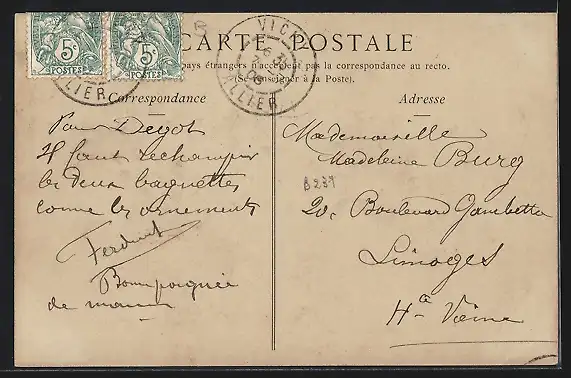 5c
POSTES
5c
POSTES
VICHY
ALLIER
CARTE POSTALE
pays étrangers n'acceptent pas la correspondance au recto.
(Se renseigner à la Poste).
Correspondance
Pour Degot
Il faut rechampir
les deux baguettes
comme les ornements
Ferdinand
Bonne poignée
de main
Adresse
Mademoiselle
Madeleine Burg
20, Boulevard Gambetta
Limoges
Hte Vienne